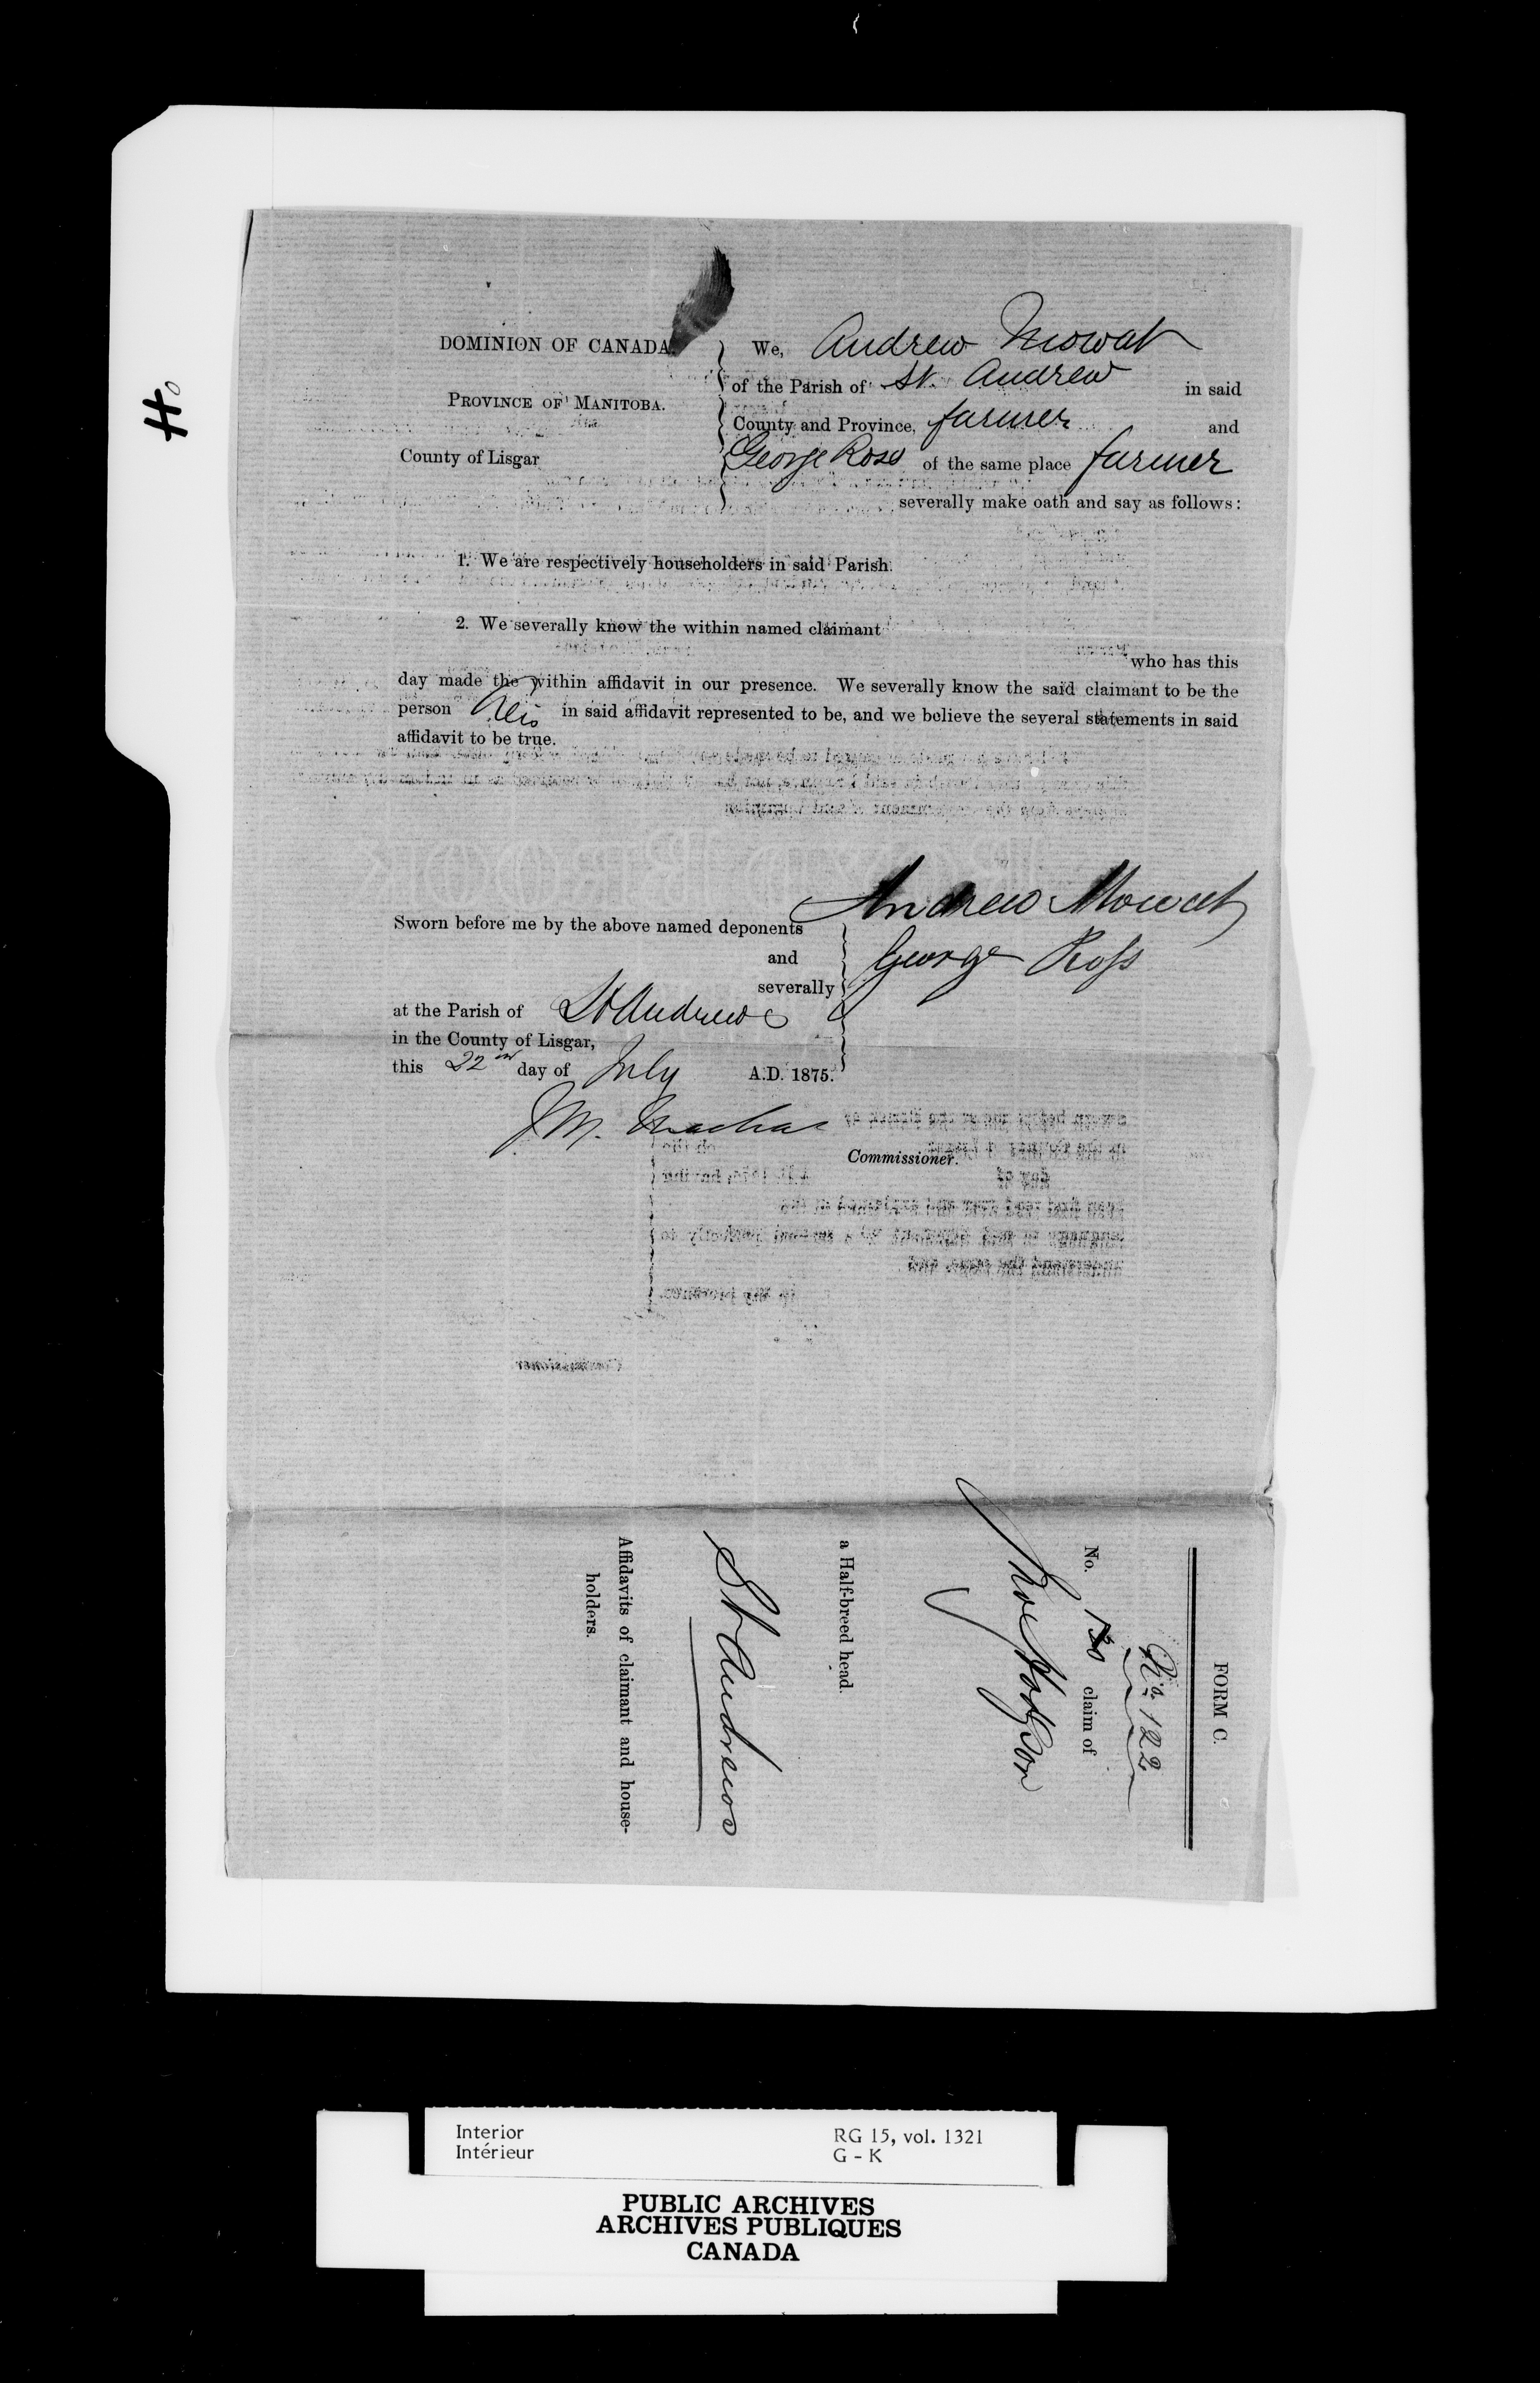 H
DOMINION OF CANADA.
PROVINCE OF MANITOBA.
County of Lisgar
We, Andrew Mowat
of the Parish of St. Andrew in said
County and Province, farmer and
George Ross of the same place farmer
severally make oath and say as follows:
1. We are respectively householders in said Parish.
2. We severally know the within named claimant
who has this
day made the within affidavit in our presence. We severally know the said claimant to be the
person in said affidavit represented to be, and we believe the several statements in said
affidavit to be true.
Sworn before me by the above named deponents
and
severally
at the Parish of St Andrews
in the County of Lisgar,
this 22nd day of July A.D. 1875.
Andrew Mowat
George Ross
J M.
Commissioner.
FORM C.
No. 122
No. 130 claim of
Hodgson
a Half-breed head.
St Andrews
Affidavits of claimant and house-
holders.
Interior
Intérieur
RG 15, vol. 1321
G - K
PUBLIC ARCHIVES
ARCHIVES PUBLIQUES
CANADA